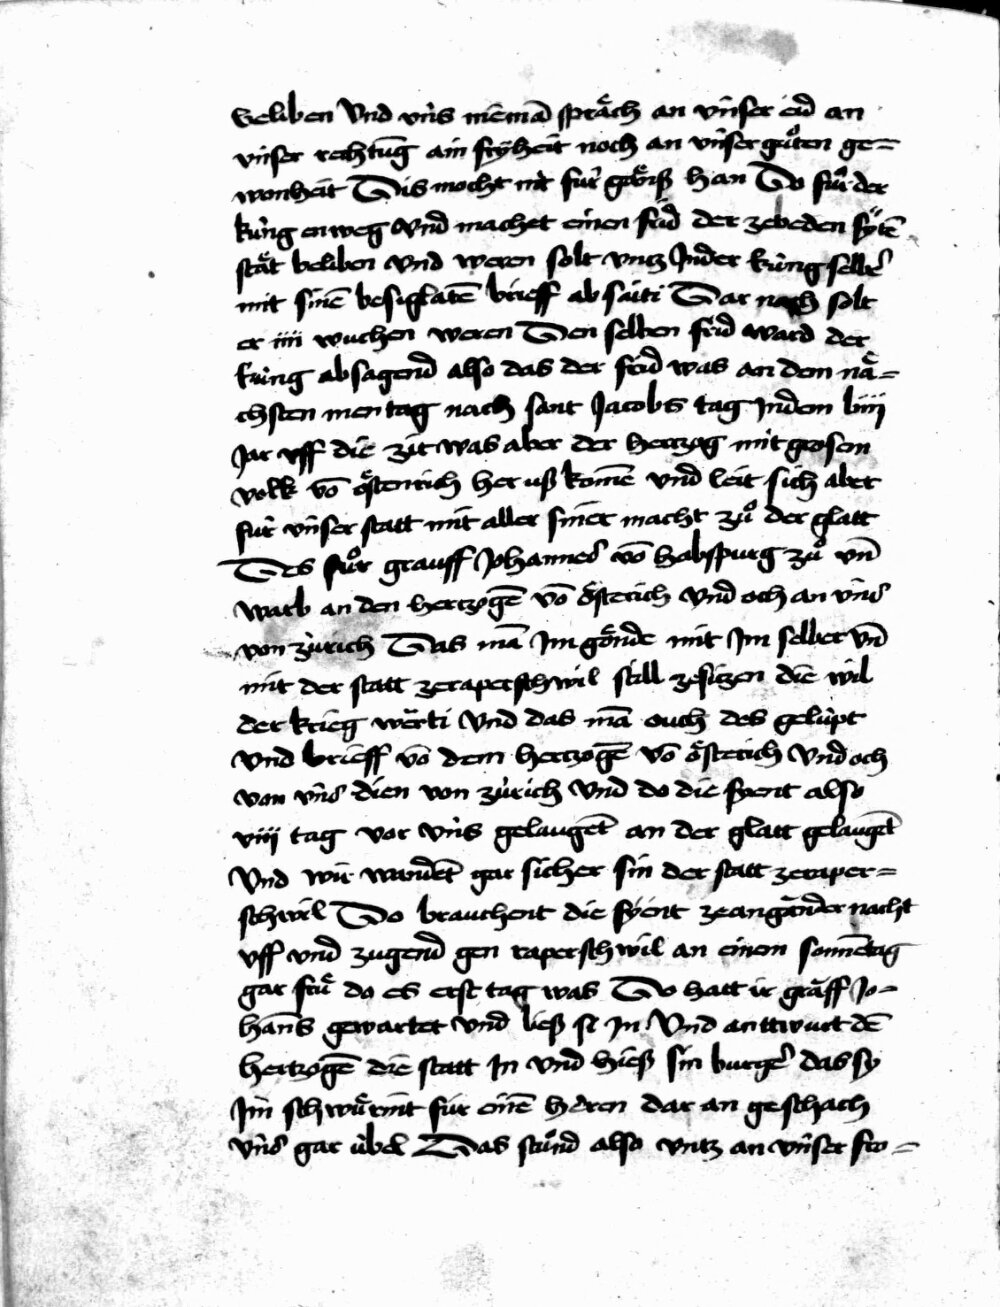 beliben vnd vns niemā spräch an vnser eid an
vnser rechtūg ain fryheit noch an vnser gůten ge=
wonheit Dis mocht nit fur gebriß han Do fůr der
kung enweg vnd machet einen frid der ze beden syten
stät beliben vnd weren solt vntz In der kung selber
mit sinē besiglatē brieff ab saiti Dar nach solt
er iiii wuchen weren Den selben frid ward der
kung absagend also das der frid was an dem nä=
chsten mentag nach sant Jacobs tag In dem liiii
Jar vff die zit was aber der hertzog mit grosem
volk vō östenrich her uß komē vnd leit sich aber
fur vnser statt mit aller siner macht zů der glatt
Des fůr grauff Johannes vō habspurg zů vn̄
warb an den hertzogē vō österich vnd och an vns
von zurich Das mā Im gönde mit Im selber vn̄
mit der statt ze raperschwil still ze sitzen die wil
der krieg wärti vnd das mā ouch des gelupt
vnd brieff vō dem hertzogē vō österich vnd och
von vns dien von zurich vnd do die fyent also
viii tag vor vns gelaugēt an der glatt gelaugēt
vnd wir wandēt gar sicher sin der statt ze raper=
schwil Do brauchent die fyent ze angänder nacht
vff vnd zugend gen raperschwil an einem sonnētag
gar frů do es erst tag was Do hatt ir gräff Jo=
hans gewartet vnd ließ si In vnd anttwurt dē
hertzogē die statt In vnd hieß sin burger das sy
Im schwůrint für einē heren dar an geschach
vns gar ubel Das stůnd also vntz an vnser fro=